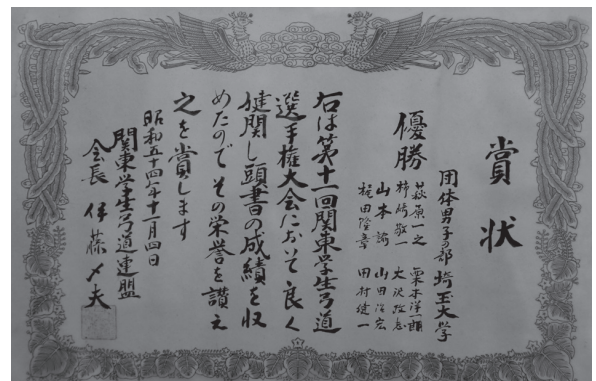 賞状
団体男子の部 埼玉大学
優勝
萩原一之 栗本洋一郎
柿崎敬一 大沢政志
山本諭 山田浩宏
植田隆章 田村健一
右は第十一回関東学生弓道
選手権大会において良く
健闘し頭書の成績を収
めたのでその栄誉を讃え
之を賞します
昭和五十四年十一月四日
関東学生弓道連盟
会長 伊藤〆夫